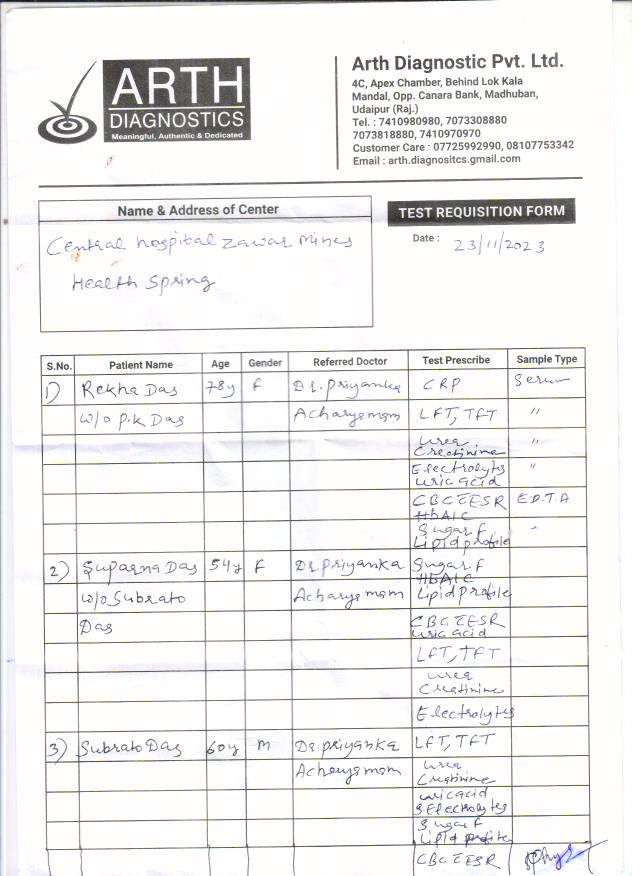 ARTH
DIAGNOSTICS
Meaningful, Authentic & Dedicated
Arth Diagnostic Pvt. Ltd.
4C, Apex Chamber, Behind Lok Kala
Mandal, Opp. Canara Bank, Madhuban,
Udaipur (Raj.)
Tel. : 7410980980, 7073308880
7073818880, 7410970970
Customer Care : 07725992990, 08107753342
Email : arth.diagnositcs.gmail.com
Name & Address of Center
Central hospital Zawar mines
Health Spring
TEST REQUISITION FORM
Date : 23/11/2023
S.No. Patient Name Age Gender Referred Doctor Test Prescribe Sample Type
1) Rekha Das 78y F Dr. Priyanka CRP Serum
W/o P.K Das Acharya mam LFT, TFT "
Urea "
Creatinine
Electrolyts "
uric acid
CBC ESR E.D.T.A
HbA1C
Sugar F "
Lipid profile
2) Suparna Das 54y F Dr. Priyanka Sugar F
HbA1C
W/o Subrato Acharya mam Lipid profile
Das CBC ESR
uric acid
LFT, TFT
Urea
Creatinine
Electrolytes
3) Subrato Das 60y M Dr. Priyanka LFT, TFT
Acharya mam Urea
Creatinine
uric acid
Electrolytes
Sugar F
Lipid profile
CBC ESR